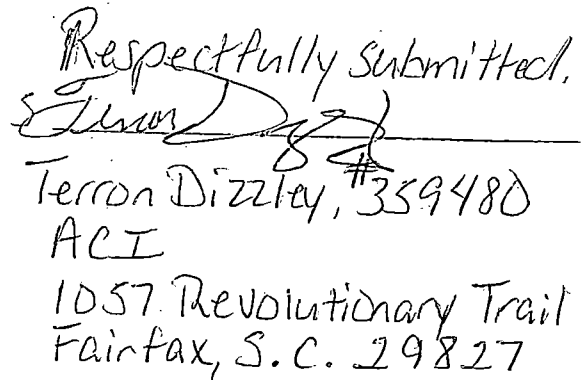 Respectfully submitted,
Terron Dizzley, #359480
ACI
1057 Revolutionary Trail
Fairfax, S.C. 29827